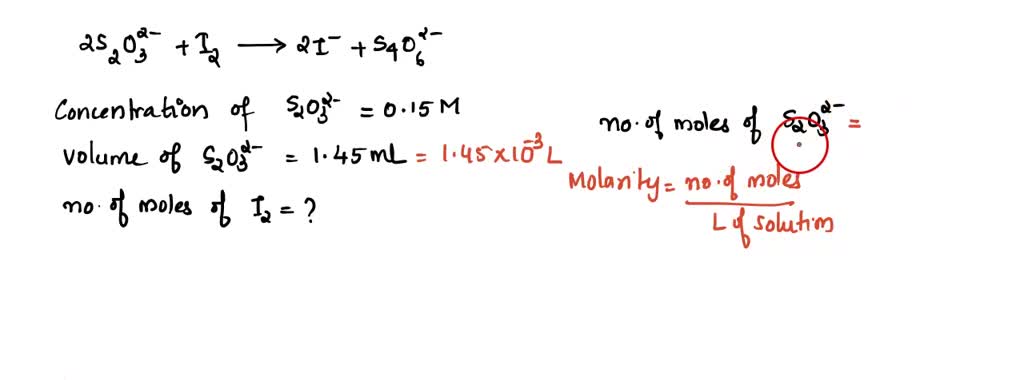 2S₂O₃²⁻ + I₂ ⟶ 2I⁻ + S₄O₆²⁻
Concentration of S₂O₃²⁻ = 0.15 M
volume of S₂O₃²⁻ = 1.45 mL = 1.45×10⁻³ L
no. of moles of I₂ = ?
no. of moles of S₂O₃²⁻ =
Molarity = no. of moles
L of solution